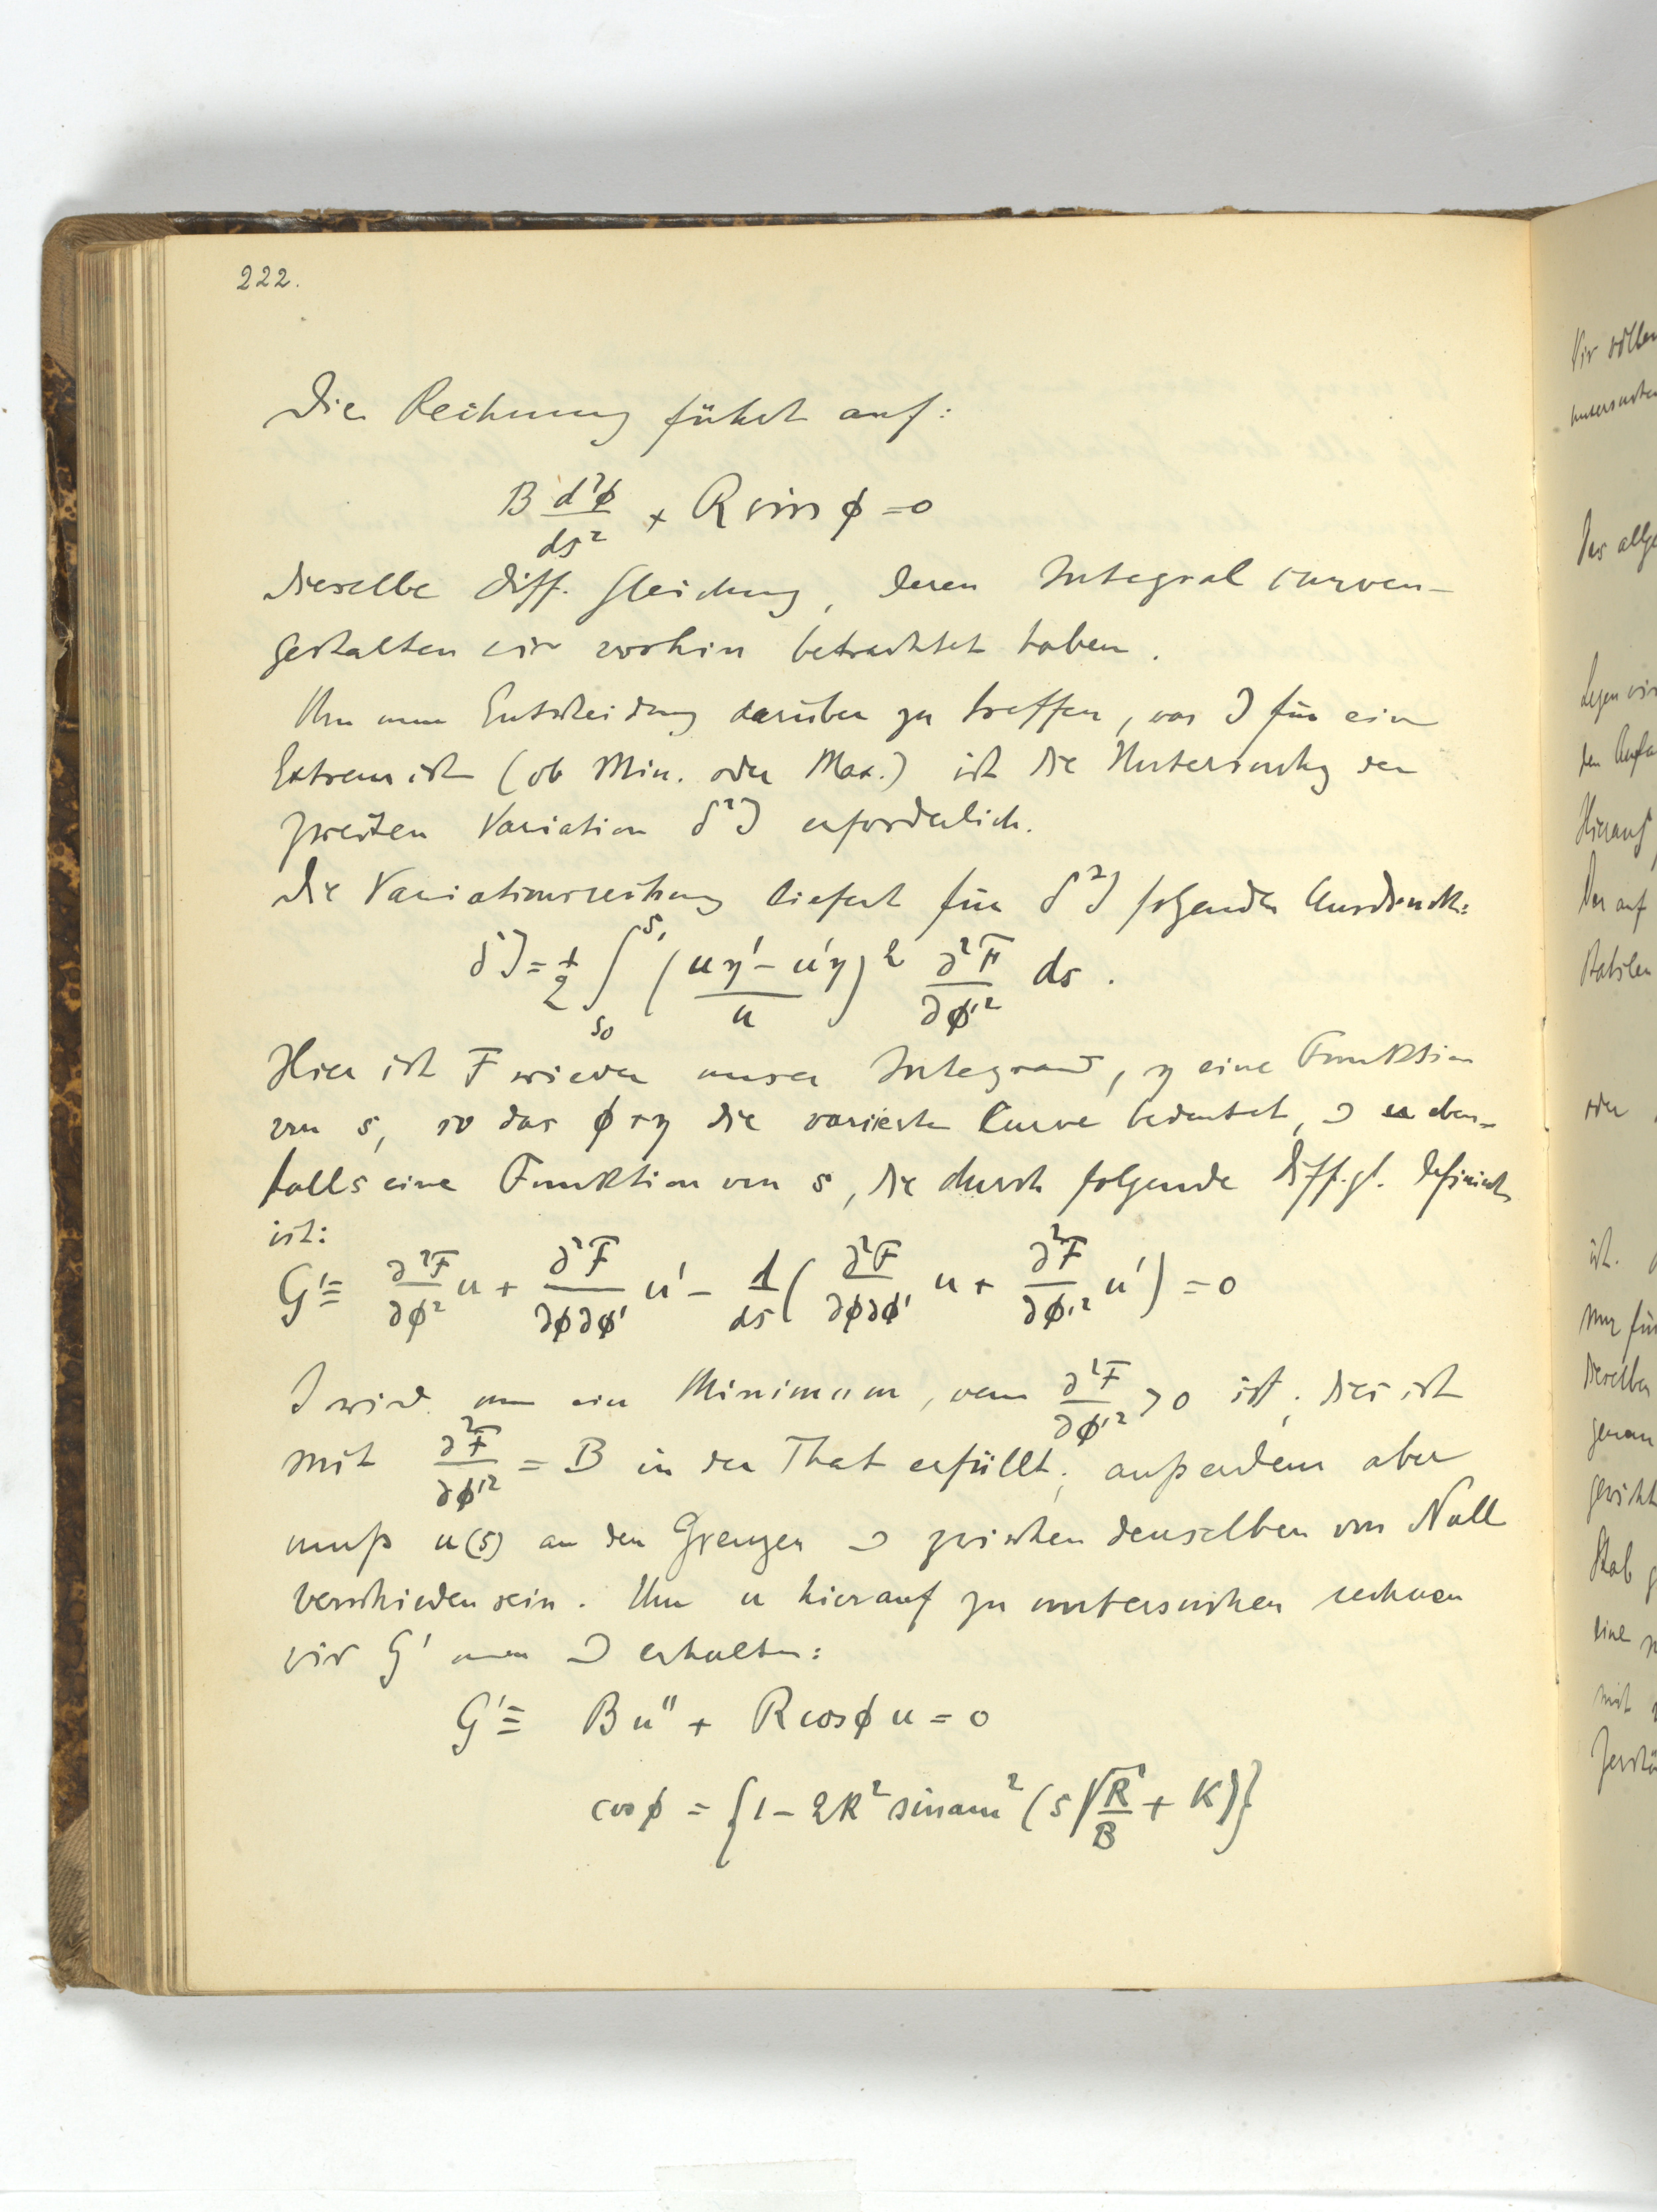 222.
Die Rechnung führt auf:
B d²ϕ/ds² + R sin ϕ = 0
dieselbe Diff. Gleichung, deren Integralcurven-
gestalten wir vorhin betrachtet haben.
Um nun Entscheidung darüber zu treffen, was J für ein
Extrem ist (ob Min. oder Max.) ist die Untersuchg der
zweiten Variation δ²J erforderlich.
Die Variationsrechnung liefert für δ²J folgenden Ausdruck:
δ²J = 1/2 ∫_{s₀}^{s₁} ((uη' - u'η)/u)² ∂²F/∂ϕ'² ds.
Hier ist F wieder unser Integrand, η eine Funktion
von s, so das ϕ+η die variierte Curve bedeutet, u eben-
falls eine Funktion von s, die durch folgende Diff.gl. definiert
ist:
G' ≡ ∂²F/∂ϕ² u + ∂²F/∂ϕ∂ϕ' u' - d/ds (∂²F/∂ϕ∂ϕ' u + ∂²F/∂ϕ'² u') = 0
J wird nun ein Minimum, wenn ∂²F/∂ϕ'² > 0 ist; dies ist
mit ∂²F/∂ϕ'² = B in der That erfüllt; außerdem aber
muß u(s) an den Grenzen zwischen denselben von Null
verschieden sein. Um u hierauf zu untersuchen rechnen
wir G' erhalten:
G' ≡ B u'' + R cos ϕ u = 0
cos ϕ = {1 - 2k² sinam² (s √R/B + K)}
Wir wollen
untersuchen
Das allge
Legen wir
den Anfa
Hierauf
Der auf
Stabilen
oder
ist.
nur für
dieselben
genau
gewicht
Stab
eine
mit